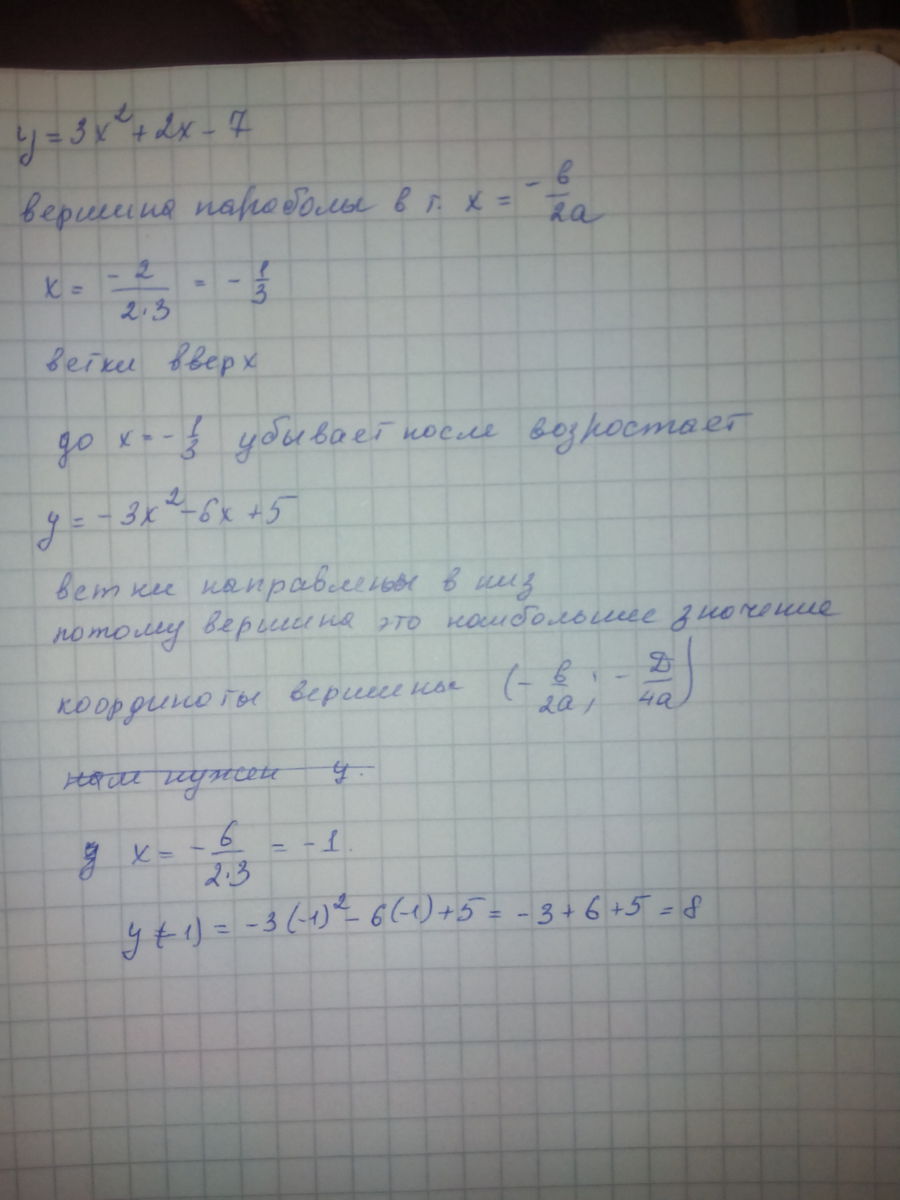 y = 3x² + 2x - 7
вершина параболы в т. x = -в/2a
x = -2/2·3 = -1/3
ветки вверх
до x = -1/3 убывает после возростает
y = -3x² - 6x + 5
ветки направлены в низ
потому вершина это наибольшее значение
координаты вершины (-в/2a; -D/4a)
нам нужен y.
x = -6/2·3 = -1.
y(-1) = -3(-1)² - 6(-1) + 5 = -3 + 6 + 5 = 8